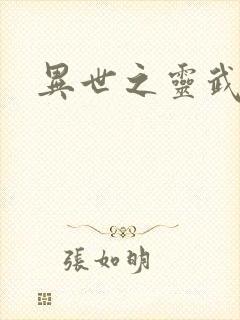 異世之靈武
張如明